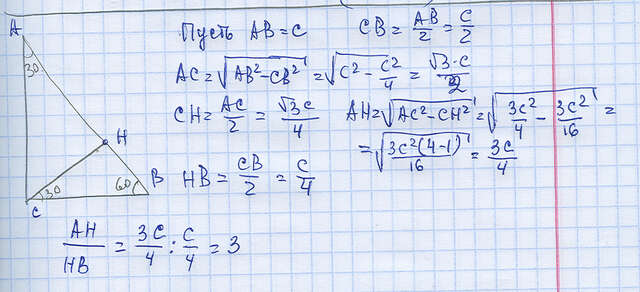 A
30
H
C
30
60
B
Пусть AB = c
CB = AB/2 = c/2
AC = √(AB² - CB²) = √(c² - c²/4) = √3·c/2
CH = AC/2 = √3c/4
AH = √(AC² - CH²) = √(3c²/4 - 3c²/16) =
= √(3c²(4-1)/16) = 3c/4
HB = CB/2 = c/4
AH/HB = 3c/4 : c/4 = 3